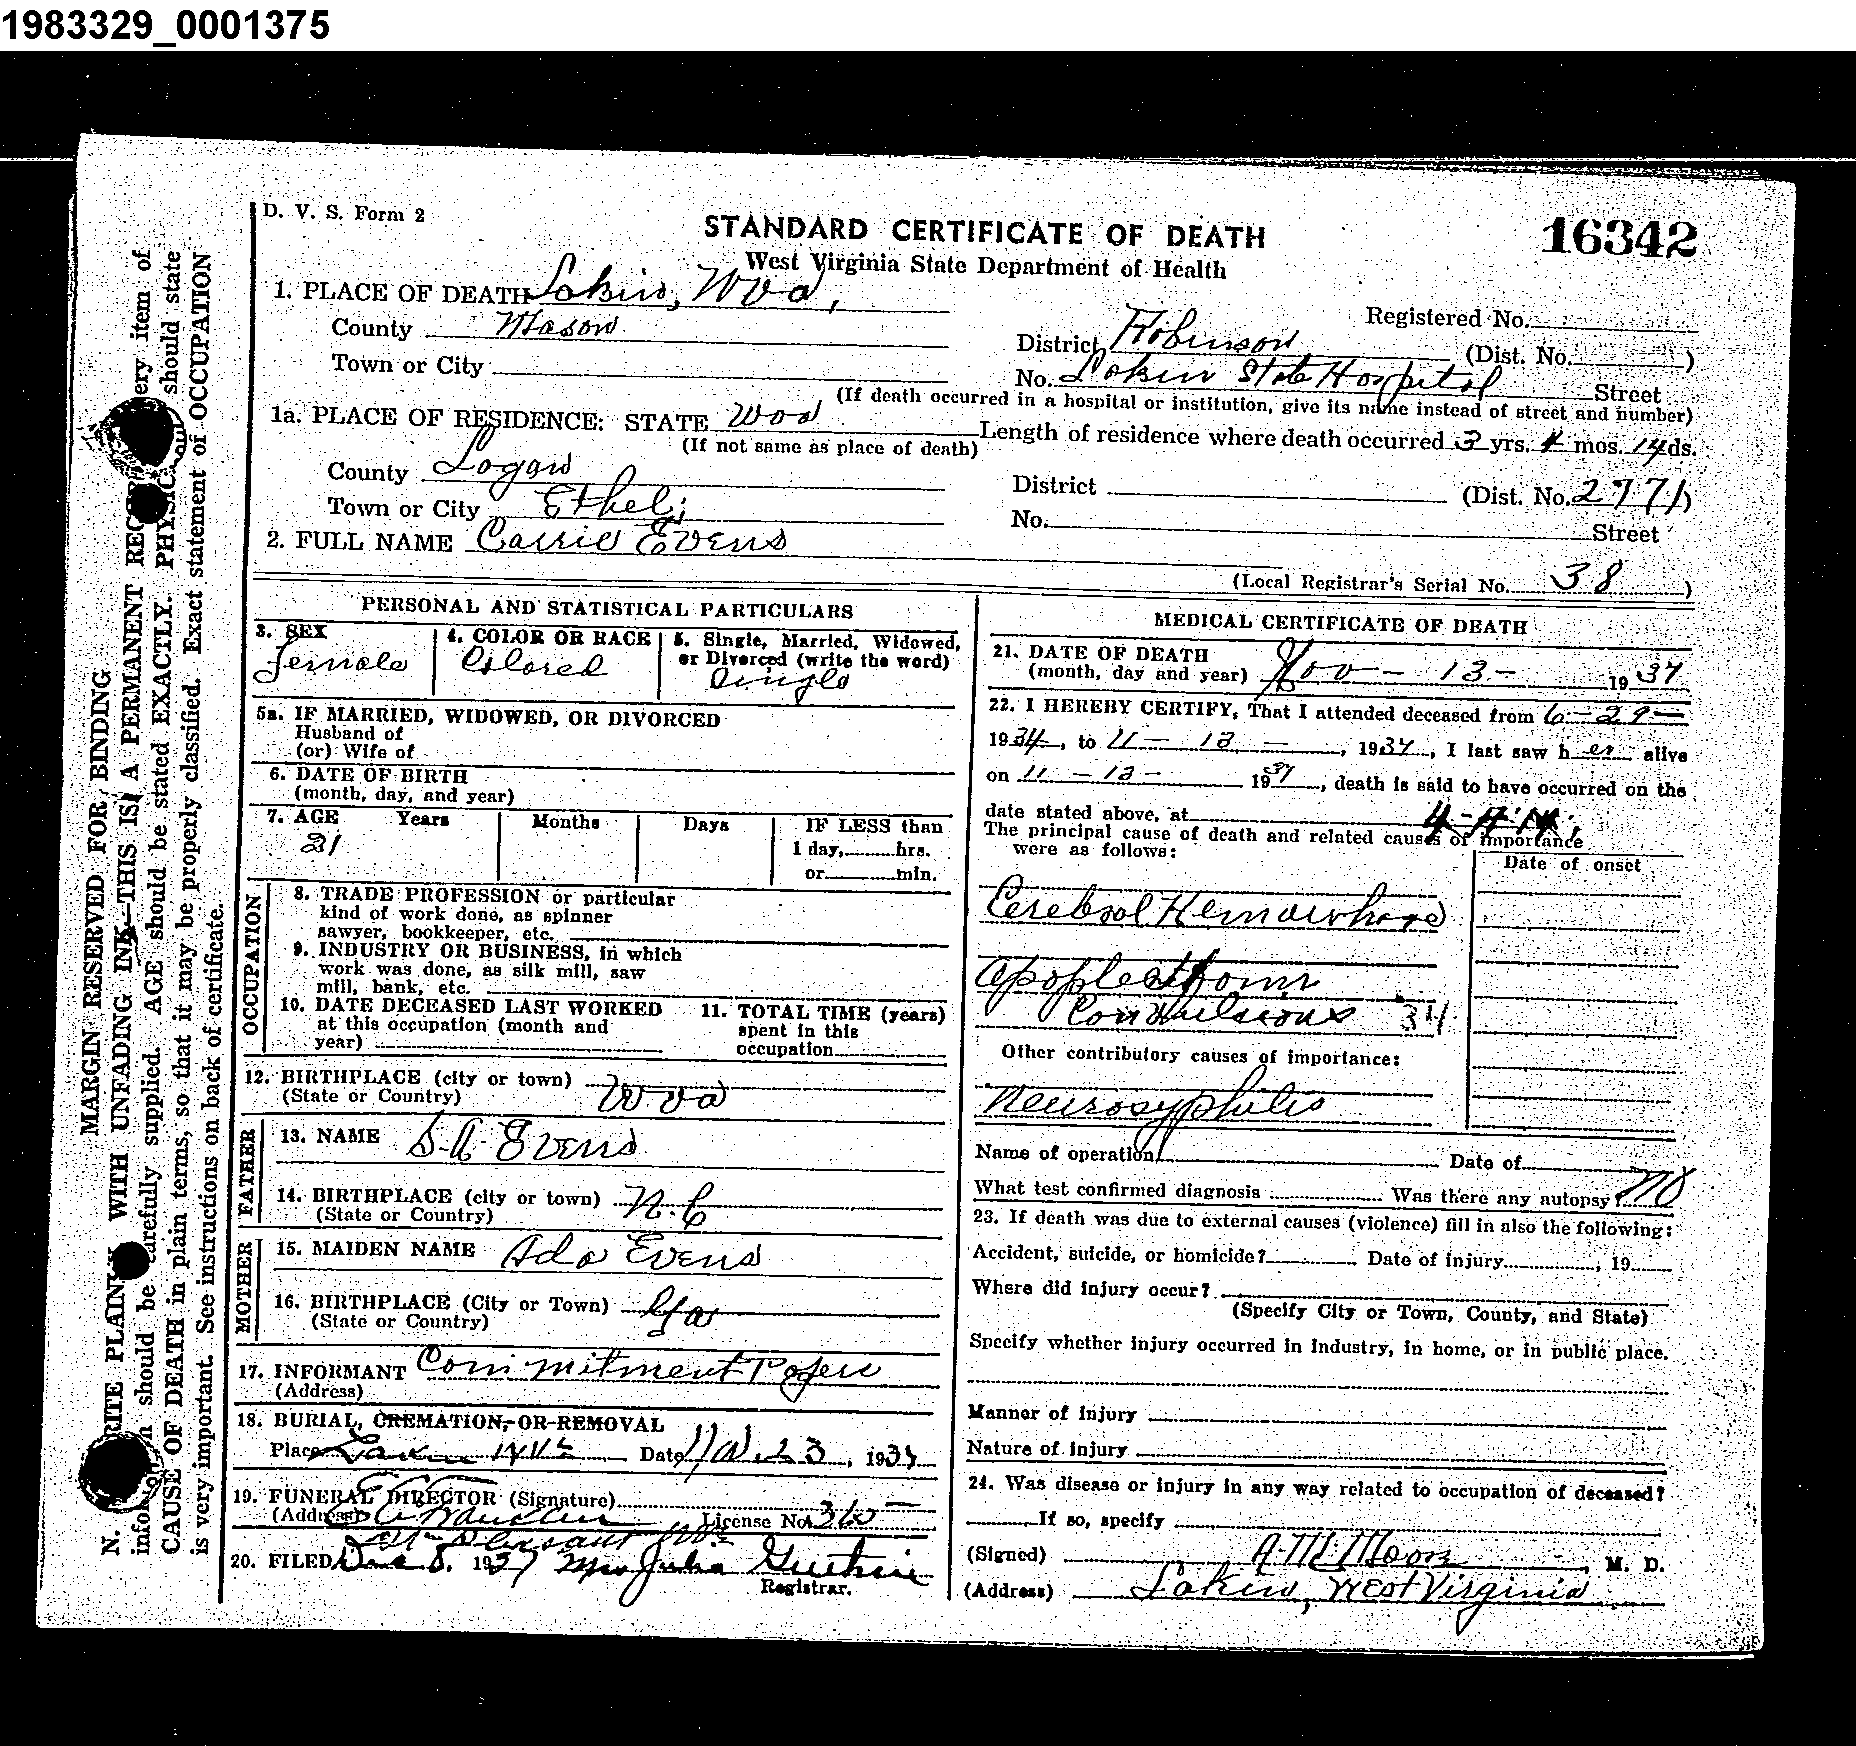 1983329_0001375
D. V. S. Form 2
STANDARD CERTIFICATE OF DEATH
16342
West Virginia State Department of Health
1. PLACE OF DEATH Lakin, Wva,
County Mason
Registered No.
District Robinson (Dist. No. )
Town or City
No. Lakin State Hospital Street
(If death occurred in a hospital or institution, give its name instead of street and number)
1a. PLACE OF RESIDENCE: STATE Wva
(If not same as place of death)
Length of residence where death occurred 3 yrs. 4 mos. 14 ds.
County Logan
District (Dist. No. 2771)
Town or City Ethel,
No. Street
2. FULL NAME Carrie Evens
(Local Registrar's Serial No. 38 )
PERSONAL AND STATISTICAL PARTICULARS
3. SEX
Female
4. COLOR OR RACE
Colored
5. Single, Married, Widowed,
or Divorced (write the word)
Single
5a. IF MARRIED, WIDOWED, OR DIVORCED
Husband of
(or) Wife of
6. DATE OF BIRTH
(month, day, and year)
7. AGE Years Months Days IF LESS than
21
1 day, hrs.
or min.
OCCUPATION
8. TRADE PROFESSION or particular
kind of work done, as spinner
sawyer, bookkeeper, etc.
9. INDUSTRY OR BUSINESS, in which
work was done, as silk mill, saw
mill, bank, etc.
10. DATE DECEASED LAST WORKED
at this occupation (month and
year)
11. TOTAL TIME (years)
spent in this
occupation
12. BIRTHPLACE (city or town)
(State or Country) Wva
FATHER
13. NAME S. A. Evens
14. BIRTHPLACE (city or town) N. C
(State or Country)
MOTHER
15. MAIDEN NAME Ada Evens
16. BIRTHPLACE (City or Town) Ga
(State or Country)
17. INFORMANT Commitment Papers
(Address)
18. BURIAL, CREMATION, OR REMOVAL
Place Lakin WVa Date Nov. 23, 1937
19. FUNERAL DIRECTOR (Signature)
(Address) License No.
Pt Pleasant WVa
20. FILED Dec 8, 1937 Mrs Julia Guthrie
Registrar.
MEDICAL CERTIFICATE OF DEATH
21. DATE OF DEATH
(month, day and year) Nov - 13 - 1937
22. I HEREBY CERTIFY, That I attended deceased from 6-29-
1934, to 11 - 13 - , 1937, I last saw her alive
on 11 - 13 - 1937, death is said to have occurred on the
date stated above, at 4 A.M.
The principal cause of death and related causes of importance
were as follows:
Date of onset
Cerebral Hemorrhage
Apoplectiform
Convulsions 34
Other contributory causes of importance:
Neurosyphilis
Name of operation Date of
What test confirmed diagnosis Was there any autopsy? No
23. If death was due to external causes (violence) fill in also the following:
Accident, suicide, or homicide? Date of injury , 19
Where did injury occur?
(Specify City or Town, County, and State)
Specify whether injury occurred in industry, in home, or in public place.
Manner of injury
Nature of injury
24. Was disease or injury in any way related to occupation of deceased?
If so, specify
(Signed) A. McMoon, M. D.
(Address) Lakin, West Virginia
MARGIN RESERVED FOR BINDING
N. RITE PLAIN WITH UNFADING INK—THIS IS A PERMANENT REC ery item of
infor n should be carefully supplied. AGE should be stated EXACTLY. PHYSIC should state
CAUSE OF DEATH in plain terms, so that it may be properly classified. Exact statement of OCCUPATION
is very important. See instructions on back of certificate.